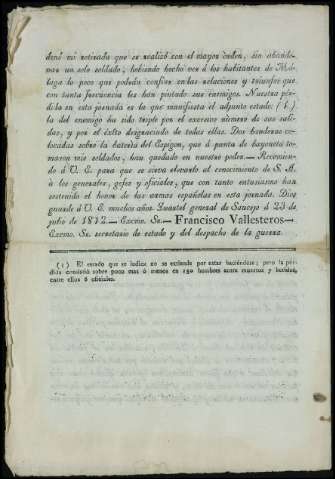 denó mi retirada que se realizó con el mayor órden, sin abando-
nar un solo soldado, habiendo hecho ver á los habitantes de Má-
laga lo poco que podian confiar en las relaciones y triunfos que
con tanta freqüencia les han pintado sus enemigos. Nuestra pér-
dida en esta jornada es la que manifiesta el adjunto estado (1),
la del enemigo ha sido triple por el excesivo número de sus sali-
das, y por el éxito desgraciado de todas ellas. Dos banderas co-
locadas sobre la batería del Espigon, que á punta de bayoneta to-
maron mis soldados, han quedado en nuestro poder.— Recomien-
do á V. E. para que se sirva elevarlo al conocimiento de S. A.
á los generales, gefes y oficiales, que con tanto entusiasmo han
sostenido el honor de las armas españolas en esta jornada. Dios
guarde á V. E. muchos años. Quartel general de Saucejo á 23 de
julio de 1812.— Excmo. Sr.— Francisco Vallesteros—
Excmo. Sr. secretario de estado y del despacho de la guerra.
(1) El estado que se indica no se extiende por estar haciéndose; pero la pér-
dida consistirá sobre poco mas ó menos en 150 hombres entre muertos y heridos,
entre ellos 6 oficiales.